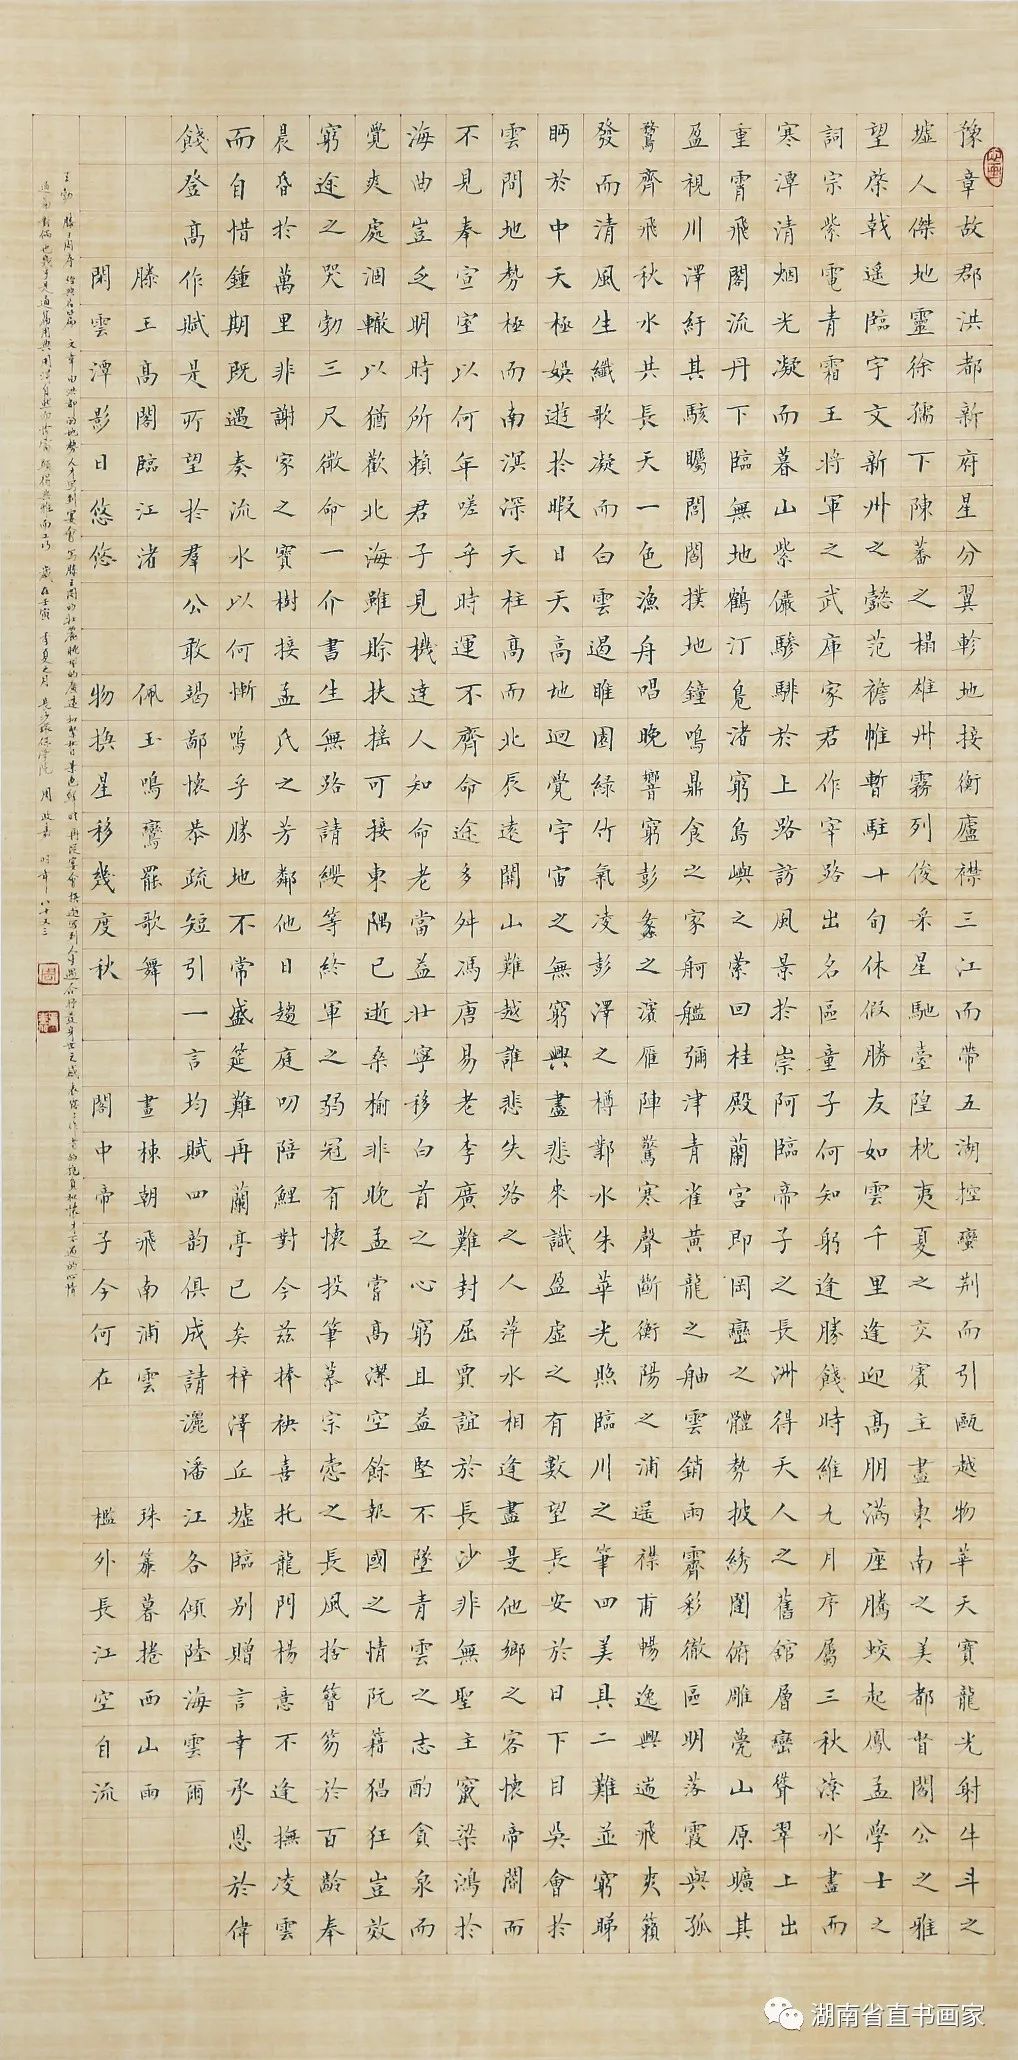 豫章故郡洪都新府星分翼軫地接衡廬襟三江而帶五湖控蠻荆而引甌越物華天寶龍光射牛斗之
墟人傑地靈徐孺下陳蕃之榻雄州霧列俊采星馳臺隍枕夷夏之交賓主盡東南之美都督閻公之雅
望棨戟遥臨宇文新州之懿范襜帷暫駐十旬休假勝友如雲千里逢迎高朋滿座騰蛟起鳳孟學士之
詞宗紫電青霜王將軍之武庫家君作宰路出名區童子何知躬逢勝餞時維九月序屬三秋潦水盡而
寒潭清烟光凝而暮山紫儼驂騑於上路訪風景於崇阿臨帝子之長洲得天人之舊舘層巒聳翠上出
重霄飛閣流丹下臨無地鶴汀鳧渚窮島嶼之縈回桂殿蘭宮即岡巒之體勢披綉闥俯雕甍山原曠其
盈視川澤紆其駭矚閭閻撲地鐘鳴鼎食之家舸艦彌津青雀黃龍之舳雲銷雨霽彩徹區明落霞與孤
鶩齊飛秋水共長天一色漁舟唱晚響窮彭蠡之濱雁陣驚寒聲斷衡陽之浦遥襟甫暢逸興遄飛爽籟
發而清風生纖歌凝而白雲遏睢園緑竹氣凌彭澤之樽鄴水朱華光照臨川之筆四美具二難並窮睇
眄於中天極娛遊於暇日天高地迥覺宇宙之無窮興盡悲來識盈虛之有數望長安於日下目吳會於
雲間地勢極而南溟深天柱高而北辰遠關山難越誰悲失路之人萍水相逢盡是他鄉之客懷帝閽而
不見奉宣室以何年嗟乎時運不齊命途多舛馮唐易老李廣難封屈賈誼於長沙非無聖主竄梁鴻於
海曲豈乏明時所賴君子見機達人知命老當益壯寧移白首之心窮且益堅不墜青雲之志酌貪泉而
覺爽處涸轍以猶歡北海雖賒扶摇可接東隅已逝桑榆非晚孟嘗高潔空餘報國之情阮籍猖狂豈效
窮途之哭勃三尺微命一介書生無路請纓等終軍之弱冠有懷投筆慕宗愨之長風捨簪笏於百齡奉
晨昏於萬里非謝家之寶樹接孟氏之芳鄰他日趨庭叨陪鯉對今茲捧袂喜托龍門楊意不逢撫凌雲
而自惜鍾期既遇奏流水以何慚嗚乎勝地不常盛筵難再蘭亭已矣梓澤丘墟臨別贈言幸承恩於偉
餞登高作賦是所望於羣公敢竭鄙懷恭疏短引一言均賦四韵俱成請灑潘江各傾陸海雲爾
滕王高閣臨江渚 佩玉鳴鸞罷歌舞 畫棟朝飛南浦雲 珠簾暮捲西山雨
閑雲潭影日悠悠 物换星移幾度秋 閣中帝子今何在 檻外長江空自流
湖南省直书画家